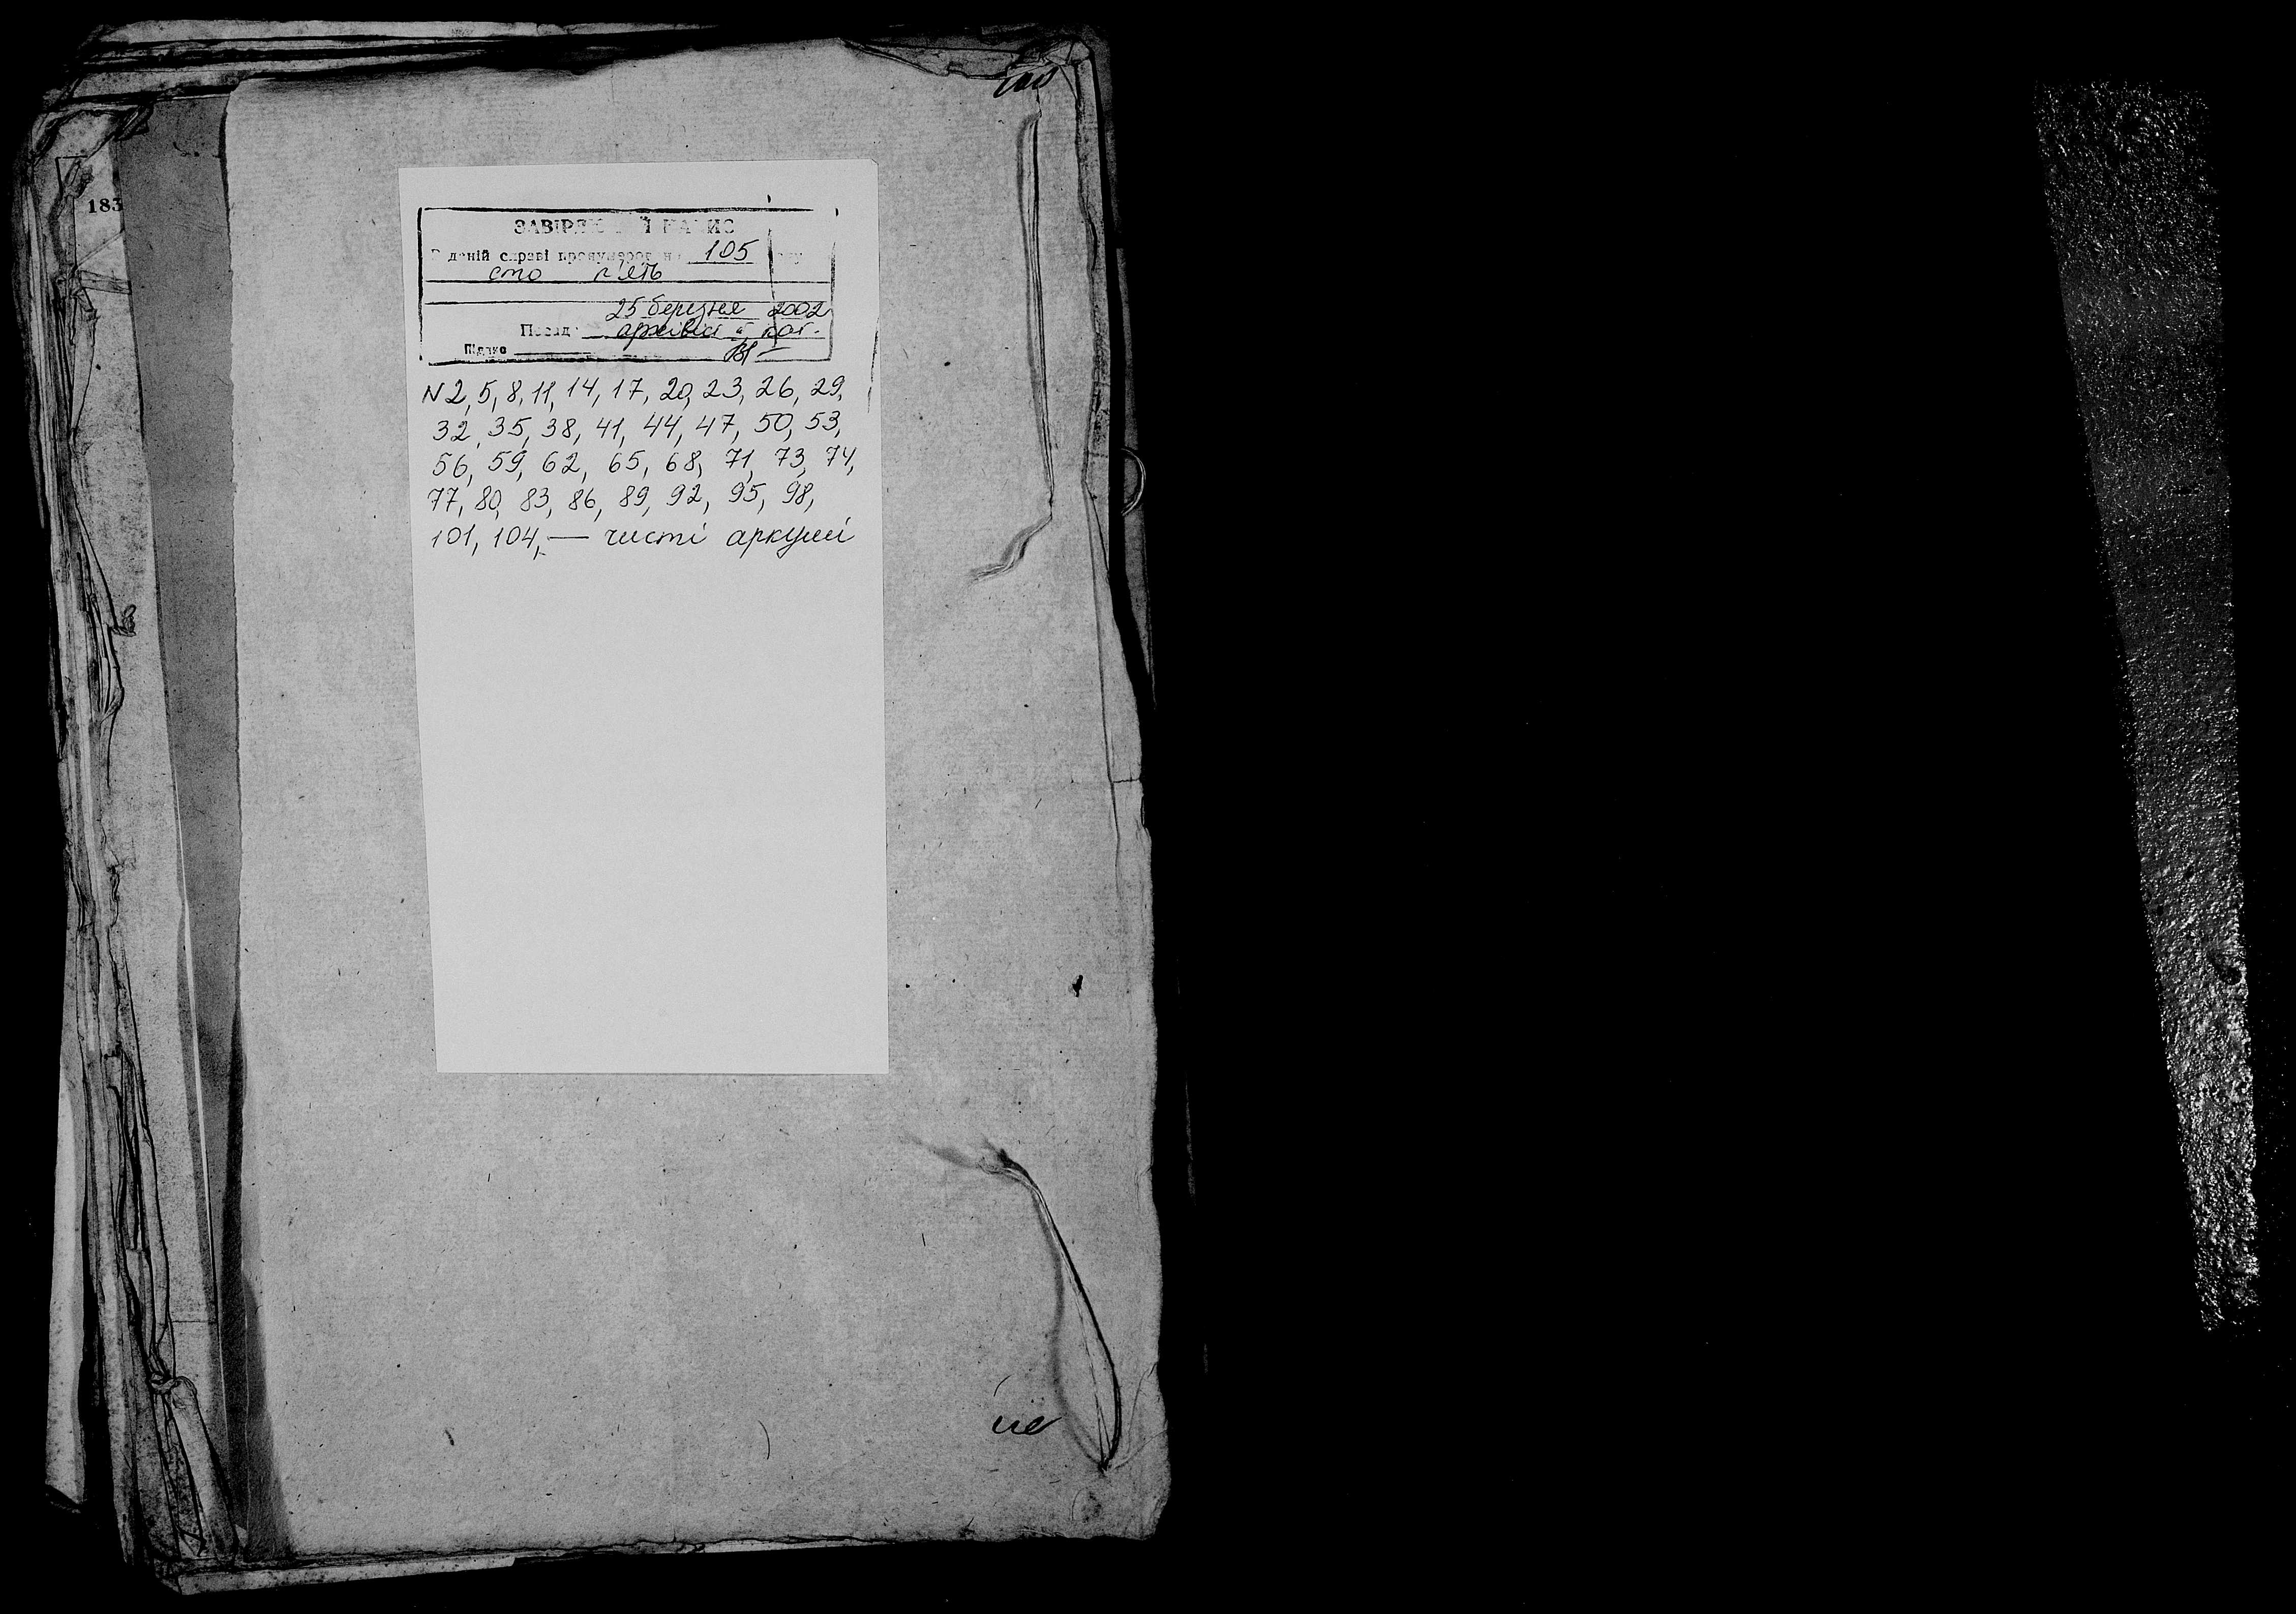 183
ЗАВІРЯЮЧИЙ НАПИС
В даній справі пронумеровано 105
сто п'ять
25 березня 2002
Посада архівіст І кат.
Підпис
N 2, 5, 8, 11, 14, 17, 20, 23, 26, 29,
32, 35, 38, 41, 44, 47, 50, 53,
56, 59, 62, 65, 68, 71, 73, 74,
77, 80, 83, 86, 89, 92, 95, 98,
101, 104, — чисті аркуші